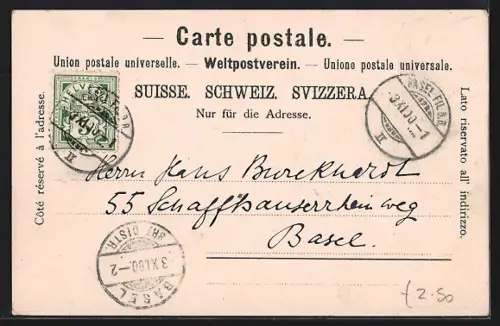 — Carte postale. —
Union postale universelle. — Weltpostverein. — Unione postale universale.
SUISSE. SCHWEIZ. SVIZZERA.
Nur für die Adresse.
Côté réservé à l'adresse.
Lato riservato all' indirizzo.
HELVETIA
BASEL FIL. B.B.
-3 XI 00 -1
II
Herrn Hans Burckhardt
55 Schaffhauserrheinweg
Basel.
BRF. DISTR.
3 XI 00 -2
BASEL
2.50